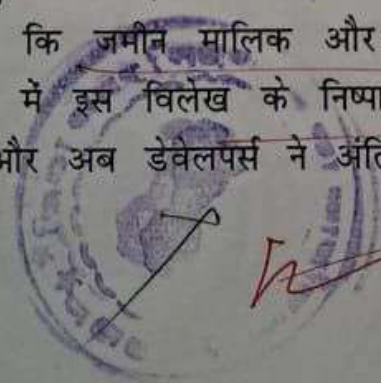 कि जमीन मालिक और
में इस विलेख के निष्पा
और अब डेवेलपर्स ने अंति